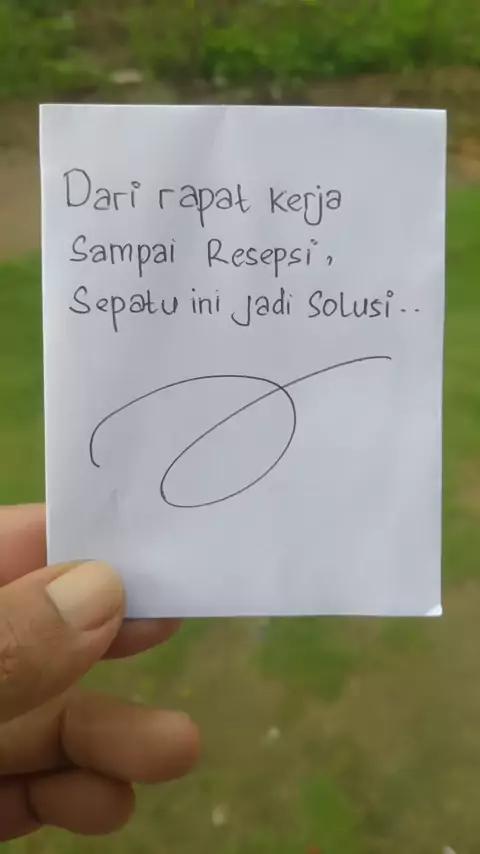 Dari rapat kerja
Sampai Resepsi,
Sepatu ini jadi Solusi..